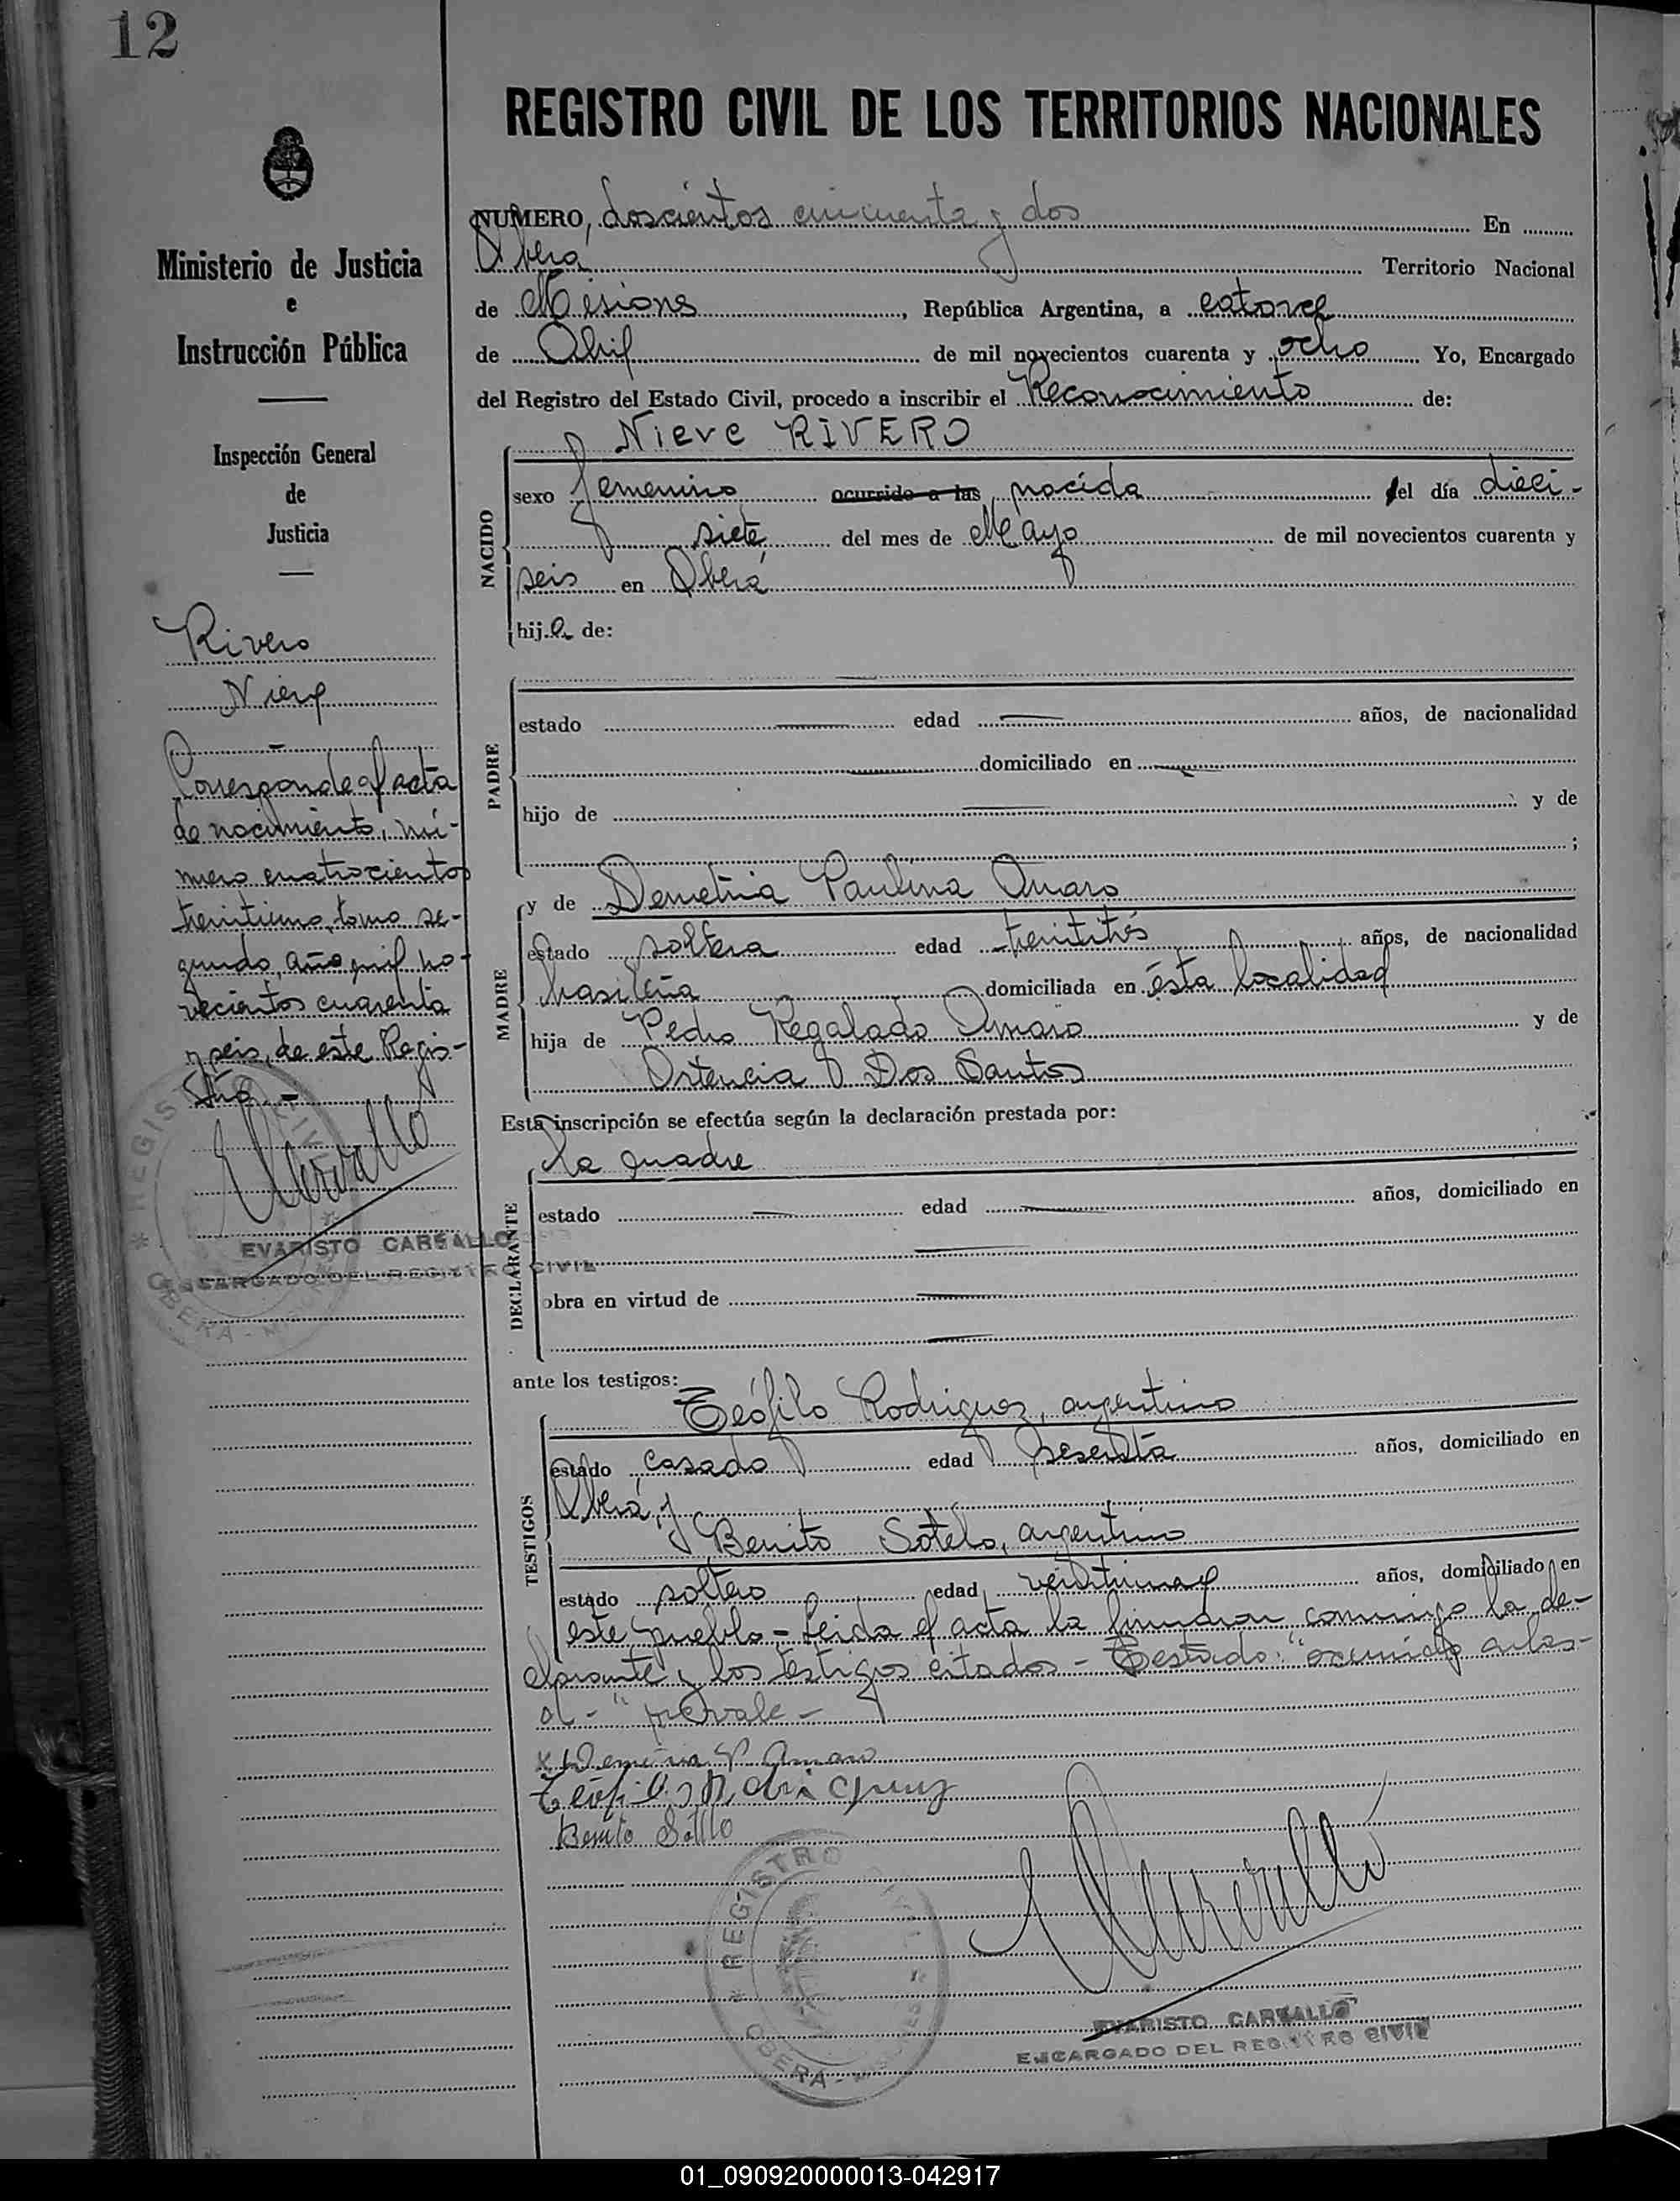 12
REGISTRO CIVIL DE LOS TERRITORIOS NACIONALES
Ministerio de Justicia
e
Instrucción Pública
Inspección General
de
Justicia
Rivero
Nieve
Corresponde al acta
de nacimiento, nú-
mero cuatrocientos
treintiuno, tomo se-
gundo, año mil no-
vecientos cuarenta
y seis, de este Regis-
tro.-
EVARISTO CARBALLO
ENCARGADO DEL REGISTRO CIVIL
NUMERO, doscientos cincuenta y dos En
Oberá Territorio Nacional
de Misiones, República Argentina, a catorce
de Abril de mil novecientos cuarenta y ocho Yo, Encargado
del Registro del Estado Civil, procedo a inscribir el Reconocimiento de:
NACIDO
Nieve RIVERO
sexo femenino ocurrido a las nacida el día dieci-
siete del mes de Mayo de mil novecientos cuarenta y
seis en Oberá
hija de:
PADRE
estado edad años, de nacionalidad
domiciliado en
hijo de y de
;
MADRE
y de Demetria Paulina Amaro
estado soltera edad treintitrés años, de nacionalidad
brasileña domiciliada en ésta localidad
hija de Pedro Regalado Amaro y de
Ortencia Dos Santos
Esta inscripción se efectúa según la declaración prestada por:
DECLARANTE
la madre
estado edad años, domiciliado en
obra en virtud de
ante los testigos:
TESTIGOS
Teófilo Rodriguez, argentino
estado casado edad sesenta años, domiciliado en
Oberá, y
Benito Sotelo, argentino
estado soltero edad años, domiciliado en
este pueblo - Leida el acta la firmaron conmigo la de-
clarante y los testigos citados - Testado: "ocurrido a las-
d-" no vale -
Demetria P Amaro
Teofilo Rodriguez
Benito Sotelo
REGISTRO CIVIL
OBERA - MISIONES
EVARISTO CARBALLO
ENCARGADO DEL REGISTRO CIVIL
01_090920000013-042917